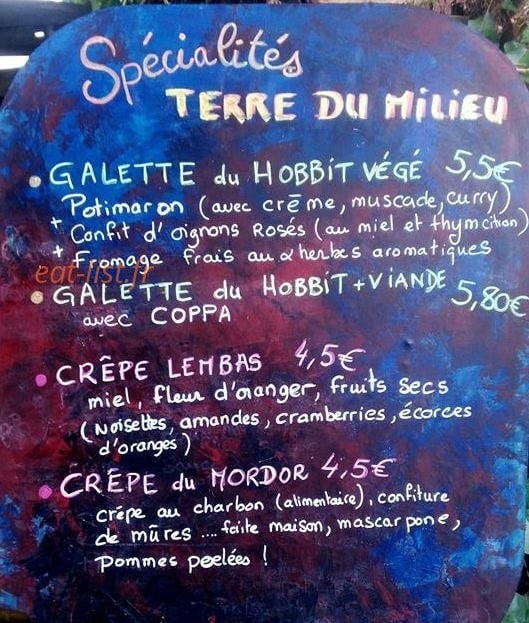 Spécialités
TERRE DU MILIEU
GALETTE du HOBBIT VÉGÉ 5,5€
Potimaron (avec crême, muscade, curry)
+ Confit d'oignons Rosés (au miel et thym citron)
+ Fromage frais aux herbes aromatiques
eat-list.fr
GALETTE du HOBBIT + VIANDE 5,80€
avec COPPA
CRÊPE LEMBAS 4,5€
miel, fleur d'oranger, fruits secs
(Noisettes, amandes, cramberries, écorces
d'oranges)
CRÊPE du MORDOR 4,5€
crêpe au charbon (alimentaire), confiture
de mûres .... faite maison, mascarpone,
pommes poelées !